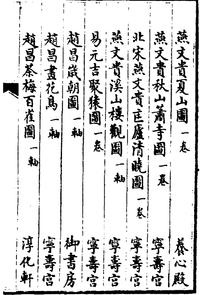 燕文貴夏山圖一卷　養心殿
燕文貴秋山蕭寺圖一卷　寧壽宮
北宋燕文貴匡廬清曉圖一卷　寧壽宮
燕文貴溪山樓觀圖一軸　寧壽宮
易元吉聚猿圖一卷　寧壽宮
趙昌歲朝圖一軸　御書房
趙昌畫花鳥一軸　寧壽宮
趙昌茶梅百雀圖一軸　淳化軒